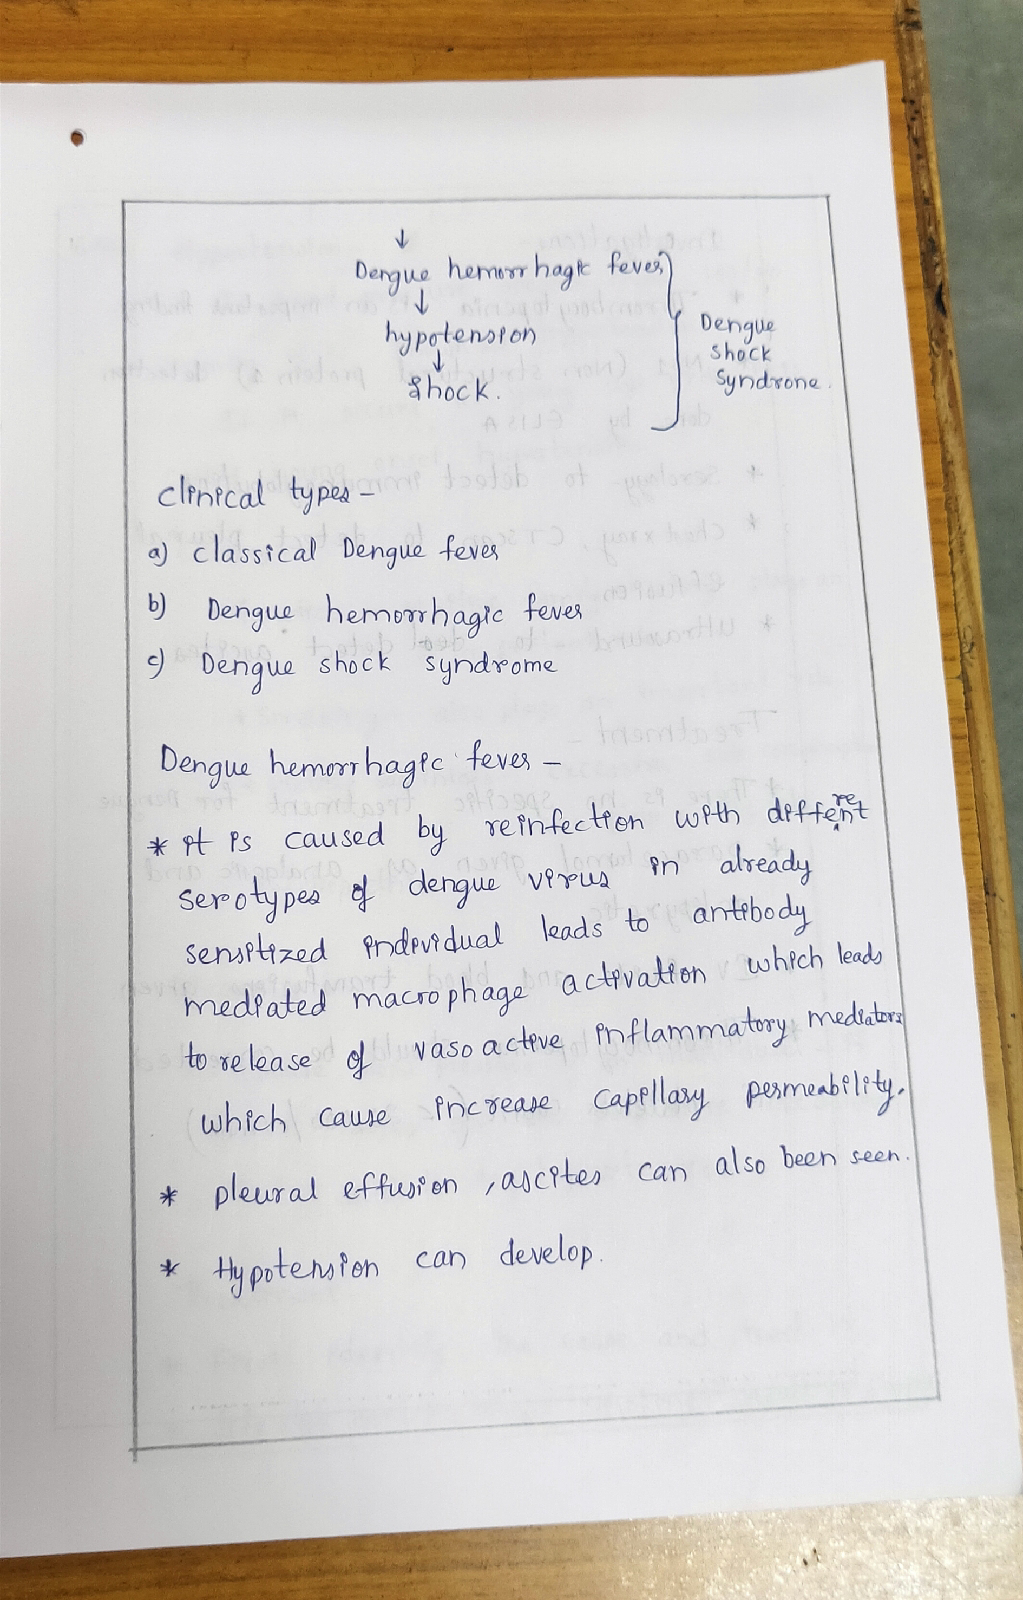 ↓
Dengue hemorrhagic fever
↓
hypotension
↓
shock.
Dengue
shock
Syndrone.
clinical types -
a) classical Dengue fever
b) Dengue hemorrhagic fever
c) Dengue shock syndrome
Dengue hemorrhagic fever -
* it is caused by reinfection with different
serotypes of dengue virus in already
sensitized individual leads to antibody
mediated macrophage activation which leads
to release of vasoactive inflammatory mediators
which cause increase capillary permeability.
* pleural effusion, ascites can also been seen.
* Hypotension can develop.